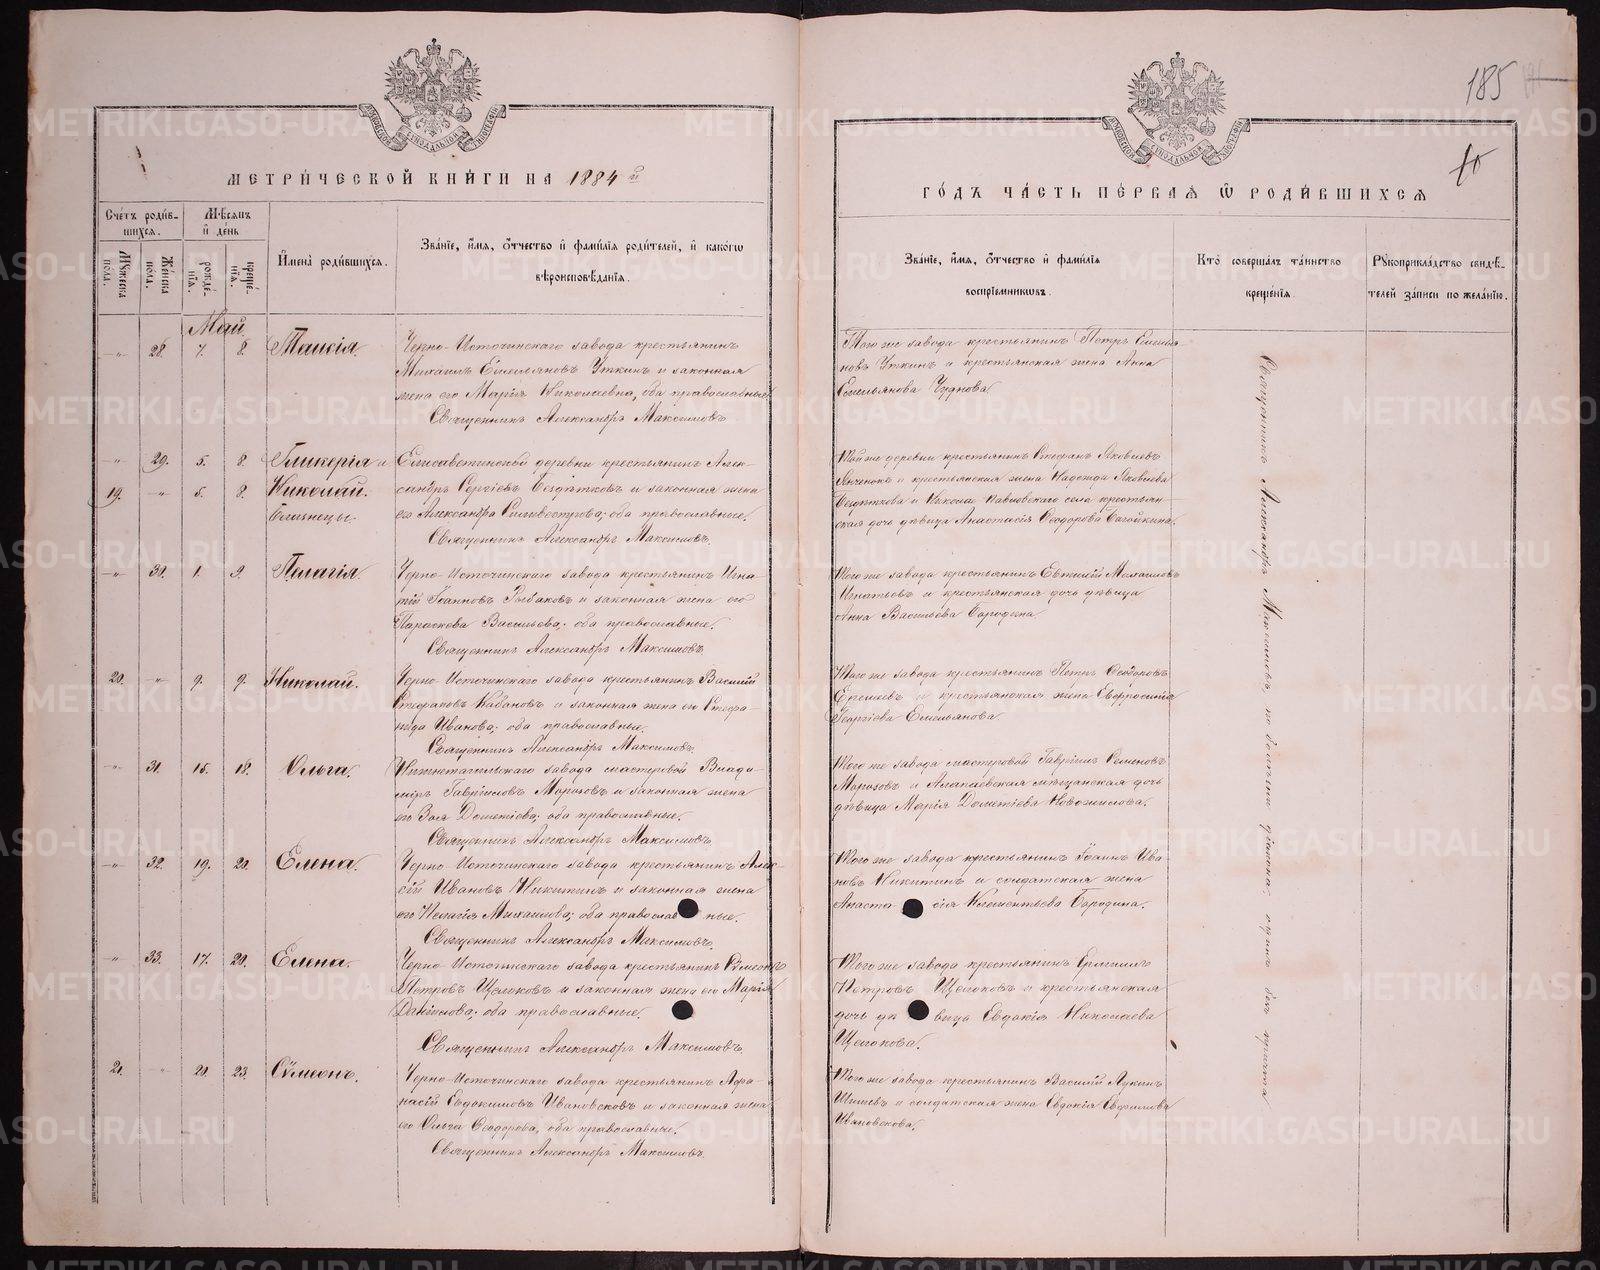 185
МЕТРИ́ЧЕСКОЙ КНИ́ГИ НА 1884 й
ГО́ДЪ ЧА́СТЬ ПЕ́РВАЯ Ѿ РОДИ́ВШИХСЯ
Сче́тъ роди́в-
шихся.
Мꙋжеска пола.
Же́нска пола.
Мѣ́сяцъ
и̂ де́нь
рожде́нїя.
креще́нїя.
И̂мена̀ роди́вшихся.
Зва́нїе, и̂́мя, ѻ́тчество и̂ фами́лїя роди́телей, и̂ како́гѡ
вѣроисповѣ́данїя.
Зва́нїе, и̂́мя, ѻ́тчество и̂ фами́лїя
воспрїе́мникѡвъ.
Кто̀ соверша́лъ та́инство
креще́нїя.
Рꙋкоприкла́дство свидѣ́-
телей за́писи по жела́нїю.
Май
„ 28. 7. 8. Таисія.
Черно-Источинскаго завода крестьянинъ
Михаилъ Емельяновъ Уткинъ и законная
жена его Марія Николаевна, оба православные.
Священникъ Александръ Максимовъ
Того же завода крестьянинъ Петръ Емелья-
новъ Уткинъ и крестьянская жена Анна
Емельянова Чуднова.
„ 29. 5. 8. Гликерія и
19. „ 5. 8. Николай.
близнецы.
Елисаветинской деревни крестьянинъ Алек-
сандръ Сергіевъ и законная жена
его Александра Сильвестрова; оба православные.
Священникъ Александръ Максимовъ.
Той же деревни крестьянинъ Стефанъ Яковлевъ
и крестьянская жена Надежда Яковлева
и Николо-Павловскаго села крестьян-
ская дочь дѣвица Анастасія Ѳеодорова
„ 30. 1. 9. Пелагія.
Черно-Источинскаго завода крестьянинъ Игна-
тій Іоанновъ Рыбаковъ и законная жена его
Параскева Васильева; оба православные.
Священникъ Александръ Максимовъ
Того же завода крестьянинъ Евтихій Михаиловъ
Игнатьевъ и крестьянская дочь дѣвица
Анна Васильева Бородина.
20. „ 9. 9. Николай.
Черно-Источинскаго завода крестьянинъ Василій
Стефановъ Кабановъ и законная жена его Стефа-
нида Иванова; оба православные.
Священникъ Александръ Максимовъ.
Того же завода крестьянинъ Петръ Ѳеодоровъ
и крестьянская жена Евфросинія
Георгіева Емельянова.
„ 31. 15. 18. Ольга.
Нижнетагильскаго завода мастеровой Влади-
міръ Гавріиловъ Морозовъ и законная жена
его Зоя Дометіева; оба православные.
Священникъ Александръ Максимовъ
Того же завода мастеровой Гавріилъ Семеновъ
Морозовъ и Алапаевская мѣщанская дочь
дѣвица Марія Дометіева Новожилова.
„ 32. 19. 20. Елена.
Черно-Источинскаго завода крестьянинъ Алек-
сій Ивановъ Никитинъ и законная жена
его Пелагія Михаилова; оба православные.
Священникъ Александръ Максимовъ.
Того же завода крестьянинъ Іоаннъ Ива-
новъ Никитинъ и солдатская жена
Анастасія Климентьева Бородина.
„ 33. 17. 20. Елена.
Черно-Источинскаго завода крестьянинъ Сѵмеонъ
Петровъ Щелоковъ и законная жена его Марія
Даніилова; оба православные.
Священникъ Александръ Максимовъ
Того же завода крестьянинъ
Петровъ Щелоковъ и крестьянская
дочь дѣвица Евдокія Николаева
Щелокова.
21. „ 20. 23. Сѵмеонъ.
Черно-Источинскаго завода крестьянинъ Афа-
насій Евдокимовъ Ивановсковъ и законная жена
его Ольга Ѳеодорова, оба православные.
Священникъ Александръ Максимовъ.
Того же завода крестьянинъ Василій Лукинъ
и солдатская жена Евдокія
Ивановскова.
Священникъ Александръ Максимовъ, по болѣзни діакона, одинъ безъ причта
METRIKI.GASO-URAL.RU